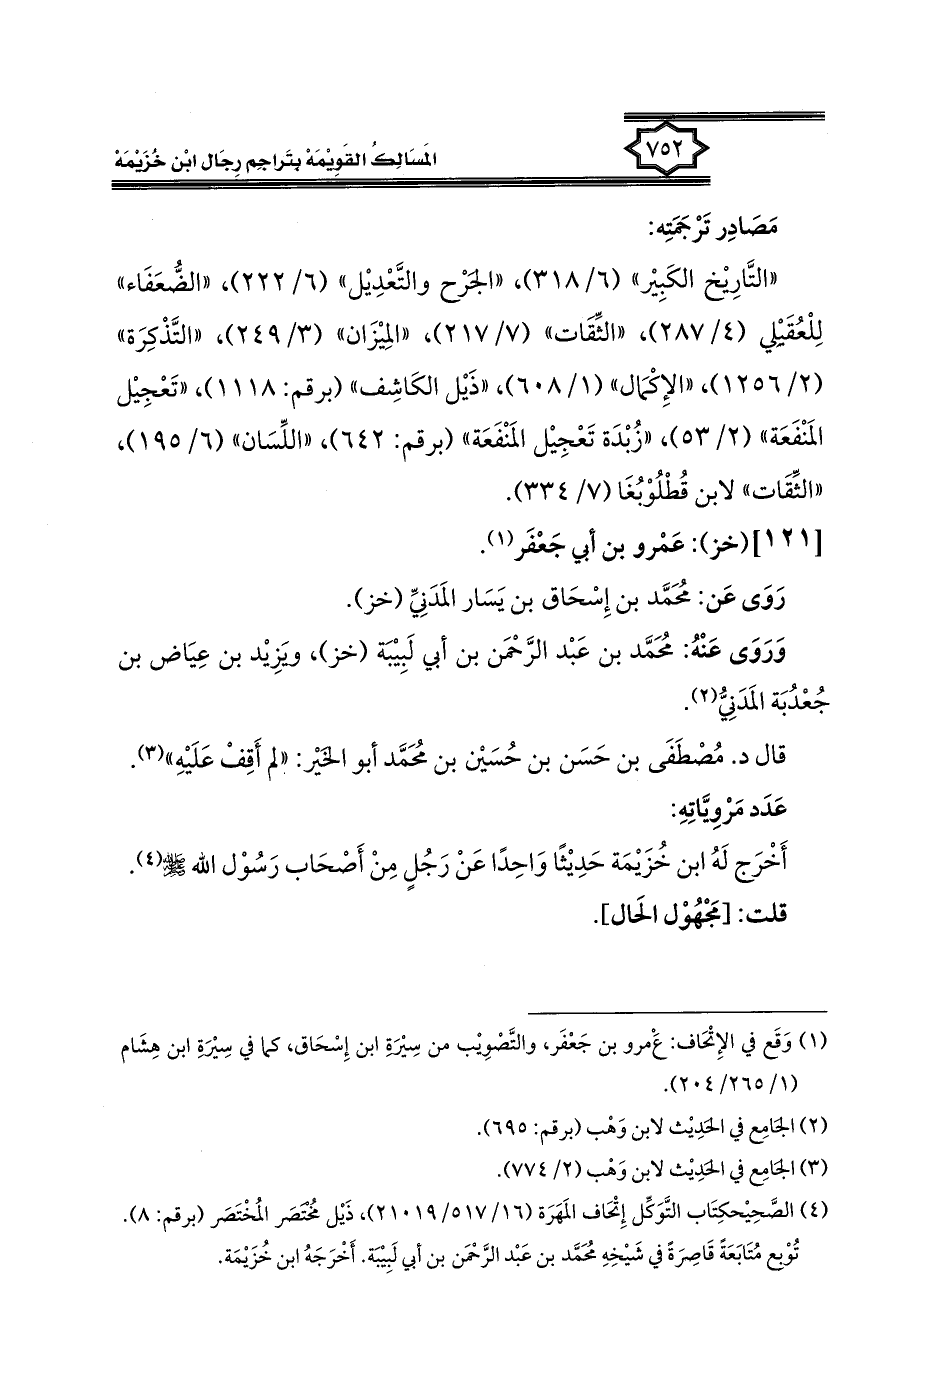 ٧٥٢
المَسَالِكُ القَوِيْمَة بِتَراجِم رِجَال ابْن خُزَيْمَة
مَصَادِر تَرْجَمَتِه:
«التَّارِيْخ الكَبِيْر» (٦/ ٣١٨)، «الجَرْح والتَّعْدِيْل» (٦/ ٢٢٢)، «الضُّعَفَاء»
لِلْعُقَيْلِي (٤/ ٢٨٧)، «الثِّقَات» (٧/ ٢١٧)، «المِيْزَان» (٣/ ٢٤٩)، «التَّذْكِرَة»
(٢/ ١٢٥٦)، «الإِكْمَال» (١/ ٦٠٨)، «ذَيْل الكَاشِف» (برقم: ١١١٨)، «تَعْجِيْل
المَنْفَعَة» (٢/ ٥٣)، «زُبْدَة تَعْجِيْل المَنْفَعَة» (برقم: ٦٤٢)، «اللِّسَان» (٦/ ١٩٥)،
«الثِّقَات» لابن قُطْلُوْبُغَا (٧/ ٣٣٤).
[١٢١](خز): عَمْرو بن أبي جَعْفَر(١).
رَوَى عَن: مُحَمَّد بن إِسْحَاق بن يَسَار المَدَنِيِّ (خز).
وَرَوَى عَنْهُ: مُحَمَّد بن عَبْد الرَّحْمَن بن أبي لَبِيْبَة (خز)، ويَزِيْد بن عِيَاض بن
جُعْدُبَة المَدَنِيُّ(٢).
قال د. مُصْطَفَى بن حَسَن بن حُسَيْن بن مُحَمَّد أبو الخَيْر: «لم أَقِفْ عَلَيْهِ»(٣).
عَدَد مَرْوِيَّاتِهِ:
أَخْرَج لَهُ ابن خُزَيْمَة حَدِيْثًا وَاحِدًا عَنْ رَجُلٍ مِنْ أَصْحَاب رَسُوْل الله ﷺ(٤).
قلت: [مَجْهُوْل الحَال].
(١) وَقَع في الإِتْحَاف: عَمْرو بن جَعْفَر، والتَّصْوِيْب من سِيْرَة ابن إِسْحَاق، كما في سِيْرَةِ ابن هِشَام
(١/ ٢٦٥/ ٢٠٤).
(٢) الجَامِع في الحَدِيْث لابن وَهْب (برقم: ٦٩٥).
(٣) الجَامِع في الحَدِيْث لابن وَهْب (٢/ ٧٧٤).
(٤) الصَّحِيْحكِتَاب التَّوَكِّل إِتْحَاف المَهَرَة (١٦/ ٥١٧/ ٢١٠١٩)، ذَيْل مُخْتَصَر المُخْتَصَر (برقم: ٨).
تُوْبِع مُتَابَعَةً قَاصِرَةً في شَيْخِهِ مُحَمَّد بن عَبْد الرَّحْمَن بن أبي لَبِيْبَة. أَخْرَجَهُ ابن خُزَيْمَة.